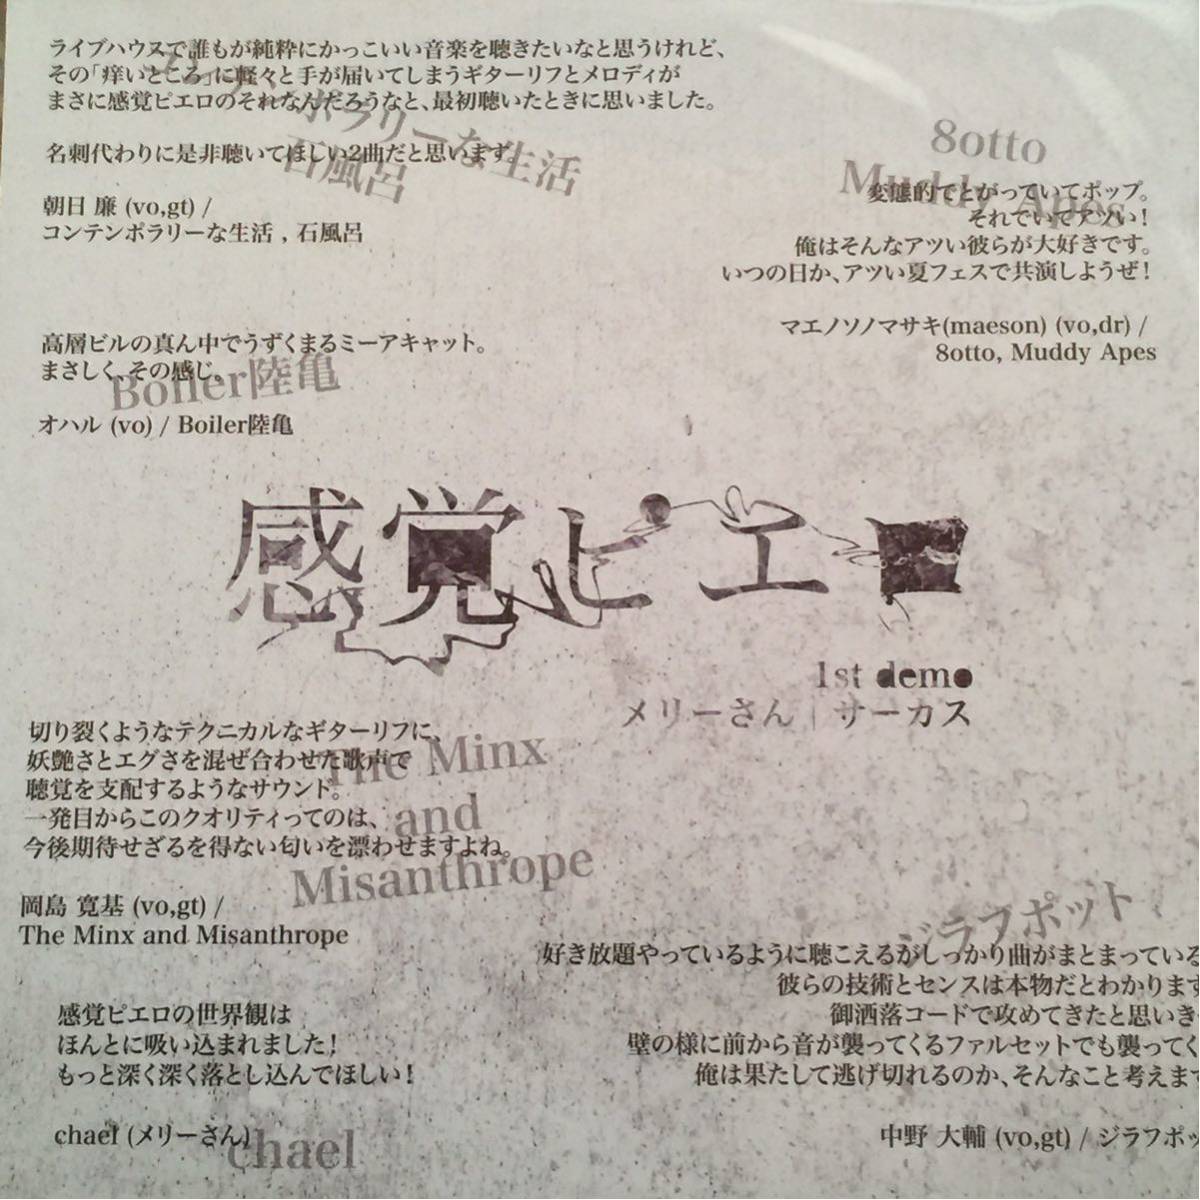 ライブハウスで誰もが純粋にかっこいい音楽を聴きたいなと思うけれど、
その「痒いところ」に軽々と手が届いてしまうギターリフとメロディが
まさに感覚ピエロのそれなんだろうなと、最初聴いたときに思いました。
名刺代わりに是非聴いてほしい2曲だと思います。
ポラリーな生活
石風呂
朝日 廉 (vo,gt) /
コンテンポラリーな生活 , 石風呂
8otto
Muddy Apes
変態的でとがっていてポップ。
それでいてアツい！
俺はそんなアツい彼らが大好きです。
いつの日か、アツい夏フェスで共演しようぜ！
マエノソノマサキ(maeson) (vo,dr) /
8otto, Muddy Apes
高層ビルの真ん中でうずくまるミーアキャット。
まさしく、その感じ。
Boiler陸亀
オハル (vo) / Boiler陸亀
感覚ピエロ
1st demo
メリーさん | サーカス
切り裂くようなテクニカルなギターリフに、
妖艶さとエグさを混ぜ合わせた歌声で
聴覚を支配するようなサウンド。
一発目からこのクオリティってのは、
今後期待せざるを得ない匂いを漂わせますよね。
The Minx
and
Misanthrope
岡島 寛基 (vo,gt) /
The Minx and Misanthrope
ジラフポット
好き放題やっているように聴こえるがしっかり曲がまとまっている
彼らの技術とセンスは本物だとわかります
御洒落コードで攻めてきたと思いき
壁の様に前から音が襲ってくるファルセットでも襲ってく
俺は果たして逃げ切れるのか、そんなこと考えます
中野 大輔 (vo,gt) / ジラフポッ
感覚ピエロの世界観は
ほんとに吸い込まれました！
もっと深く深く落とし込んでほしい！
chael (メリーさん)
chael